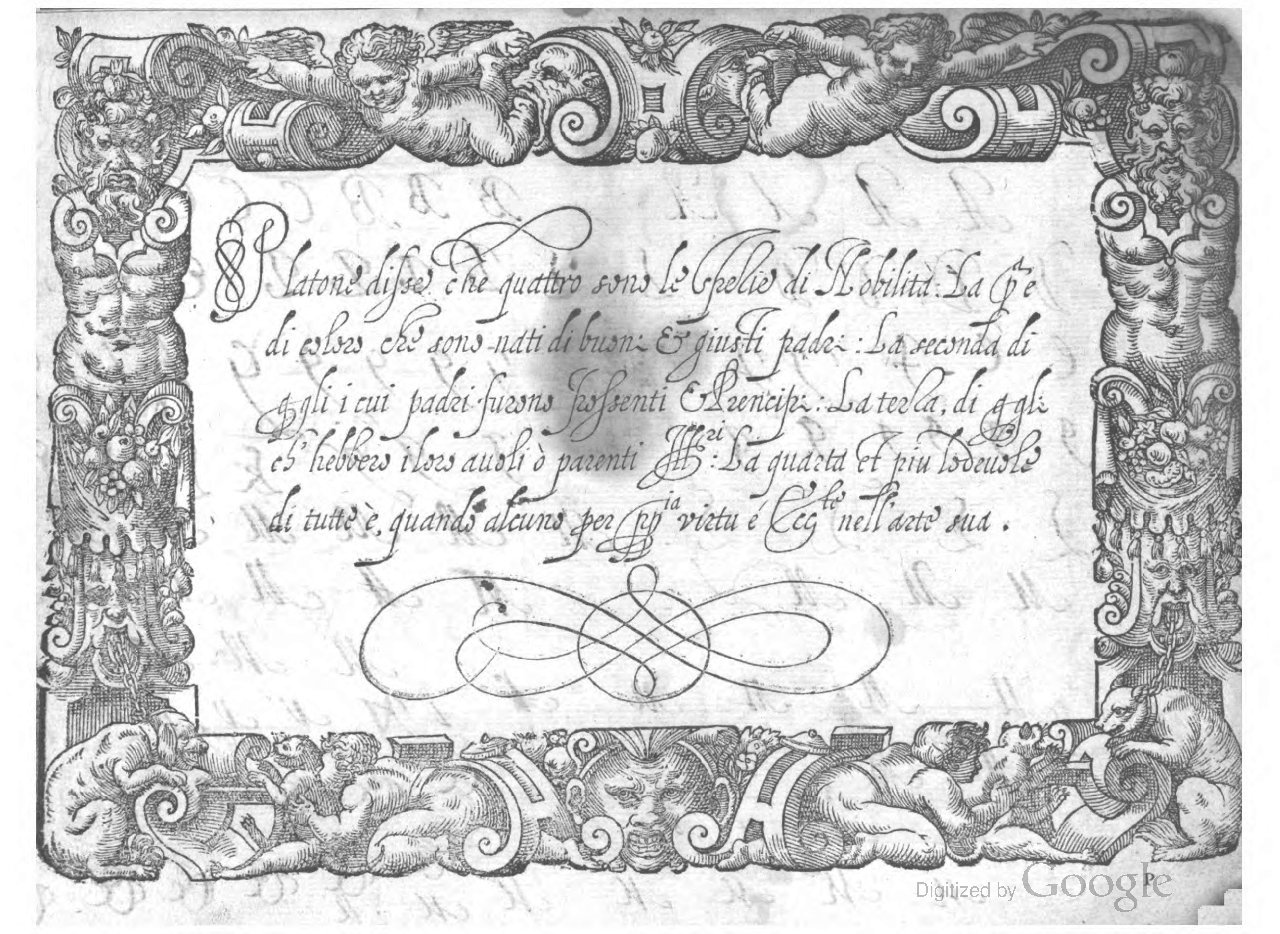 Platone disse, che quattro sono le Spetie di Nobilità: La pª è
di coloro che sono nati di buoni & giusti padri: La seconda di
qgli i cui padri furono possenti & Prencipi: La terza, di qgli
ch'hebbero i loro avoli ò parenti Illri: La quarta et piu lodevole
di tutte è, quando alcuno per ppia virtu é Eccte nell'arte sua.
P
Digitized by Google